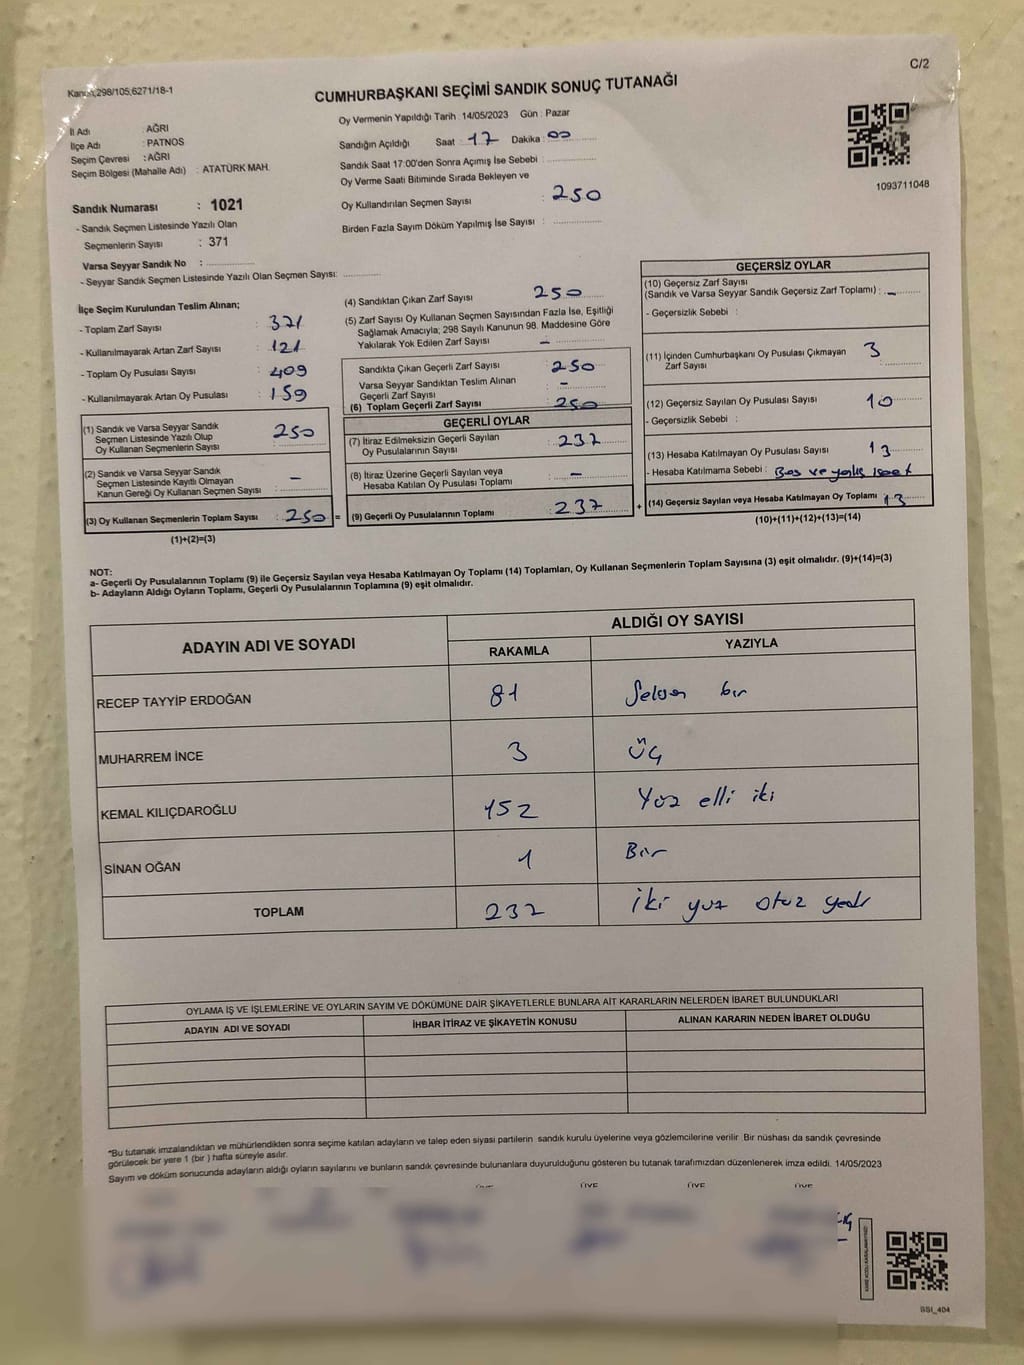 C/2
Kanun;298/105;6271/18-1
CUMHURBAŞKANI SEÇİMİ SANDIK SONUÇ TUTANAĞI
İl Adı : AĞRI
İlçe Adı : PATNOS
Seçim Çevresi : AĞRI
Seçim Bölgesi (Mahalle Adı) : ATATÜRK MAH.
Oy Vermenin Yapıldığı Tarih : 14/05/2023 Gün : Pazar
Sandığın Açıldığı Saat : 17 Dakika : 00
Sandık Saat 17:00'den Sonra Açımış İse Sebebi :
Oy Verme Saati Bitiminde Sırada Bekleyen ve
Oy Kullandırılan Seçmen Sayısı : 250
Birden Fazla Sayım Döküm Yapılmış İse Sayısı :
1093711048
Sandık Numarası : 1021
- Sandık Seçmen Listesinde Yazılı Olan
Seçmenlerin Sayısı : 371
Varsa Seyyar Sandık No :
- Seyyar Sandık Seçmen Listesinde Yazılı Olan Seçmen Sayısı:
İlçe Seçim Kurulundan Teslim Alınan;
- Toplam Zarf Sayısı : 371
- Kullanılmayarak Artan Zarf Sayısı : 121
- Toplam Oy Pusulası Sayısı : 409
- Kullanılmayarak Artan Oy Pusulası : 159
(1) Sandık ve Varsa Seyyar Sandık
Seçmen Listesinde Yazılı Olup
Oy Kullanan Seçmenlerin Sayısı : 250
(2) Sandık ve Varsa Seyyar Sandık
Seçmen Listesinde Kayıtlı Olmayan
Kanun Gereği Oy Kullanan Seçmen Sayısı : -
(3) Oy Kullanan Seçmenlerin Toplam Sayısı : 250 =
(1)+(2)=(3)
(4) Sandıktan Çıkan Zarf Sayısı : 250
(5) Zarf Sayısı Oy Kullanan Seçmen Sayısından Fazla İse, Eşitliği
Sağlamak Amacıyla; 298 Sayılı Kanunun 98. Maddesine Göre
Yakılarak Yok Edilen Zarf Sayısı : -
Sandıkta Çıkan Geçerli Zarf Sayısı : 250
Varsa Seyyar Sandıktan Teslim Alınan
Geçerli Zarf Sayısı : -
(6) Toplam Geçerli Zarf Sayısı : 250
GEÇERLİ OYLAR
(7) İtiraz Edilmeksizin Geçerli Sayılan
Oy Pusulalarının Sayısı : 237
(8) İtiraz Üzerine Geçerli Sayılan veya
Hesaba Katılan Oy Pusulası Toplamı : -
(9) Geçerli Oy Pusulalarının Toplamı : 237 +
GEÇERSİZ OYLAR
(10) Geçersiz Zarf Sayısı
(Sandık ve Varsa Seyyar Sandık Geçersiz Zarf Toplamı) : -
- Geçersizlik Sebebi :
(11) İçinden Cumhurbaşkanı Oy Pusulası Çıkmayan
Zarf Sayısı : 3
(12) Geçersiz Sayılan Oy Pusulası Sayısı : 10
- Geçersizlik Sebebi :
(13) Hesaba Katılmayan Oy Pusulası Sayısı : 13
- Hesaba Katılmama Sebebi : Boş ve
(14) Geçersiz Sayılan veya Hesaba Katılmayan Oy Toplamı : 13
(10)+(11)+(12)+(13)=(14)
NOT:
a- Geçerli Oy Pusulalarının Toplamı (9) ile Geçersiz Sayılan veya Hesaba Katılmayan Oy Toplamı (14) Toplamları, Oy Kullanan Seçmenlerin Toplam Sayısına (3) eşit olmalıdır. (9)+(14)=(3)
b- Adayların Aldığı Oyların Toplamı, Geçerli Oy Pusulalarının Toplamına (9) eşit olmalıdır.
ADAYIN ADI VE SOYADI ALDIĞI OY SAYISI
RAKAMLA YAZIYLA
RECEP TAYYİP ERDOĞAN 81 Seksen bir
MUHARREM İNCE 3 Üç
KEMAL KILIÇDAROĞLU 152 Yüz elli iki
SİNAN OĞAN 1 Bir
TOPLAM 237 iki yuz otuz yedi
OYLAMA İŞ VE İŞLEMLERİNE VE OYLARIN SAYIM VE DÖKÜMÜNE DAİR ŞİKAYETLERLE BUNLARA AİT KARARLARIN NELERDEN İBARET BULUNDUKLARI
ADAYIN ADI VE SOYADI İHBAR İTİRAZ VE ŞİKAYETİN KONUSU ALINAN KARARIN NEDEN İBARET OLDUĞU
"Bu tutanak imzalandıktan ve mühürlendikten sonra seçime katılan adayların ve talep eden siyasi partilerin sandık kurulu üyelerine veya gözlemcilerine verilir. Bir nüshası da sandık çevresinde
görülecek bir yere 1 (bir ) hafta süreyle asılır.
Sayım ve döküm sonucunda adayların aldığı oyların sayılarını ve bunların sandık çevresinde bulunanlara duyurulduğunu gösteren bu tutanak tarafımızdan düzenlenerek imza edildi. 14/05/2023
ÜYE ÜYE ÜYE
SSI_404